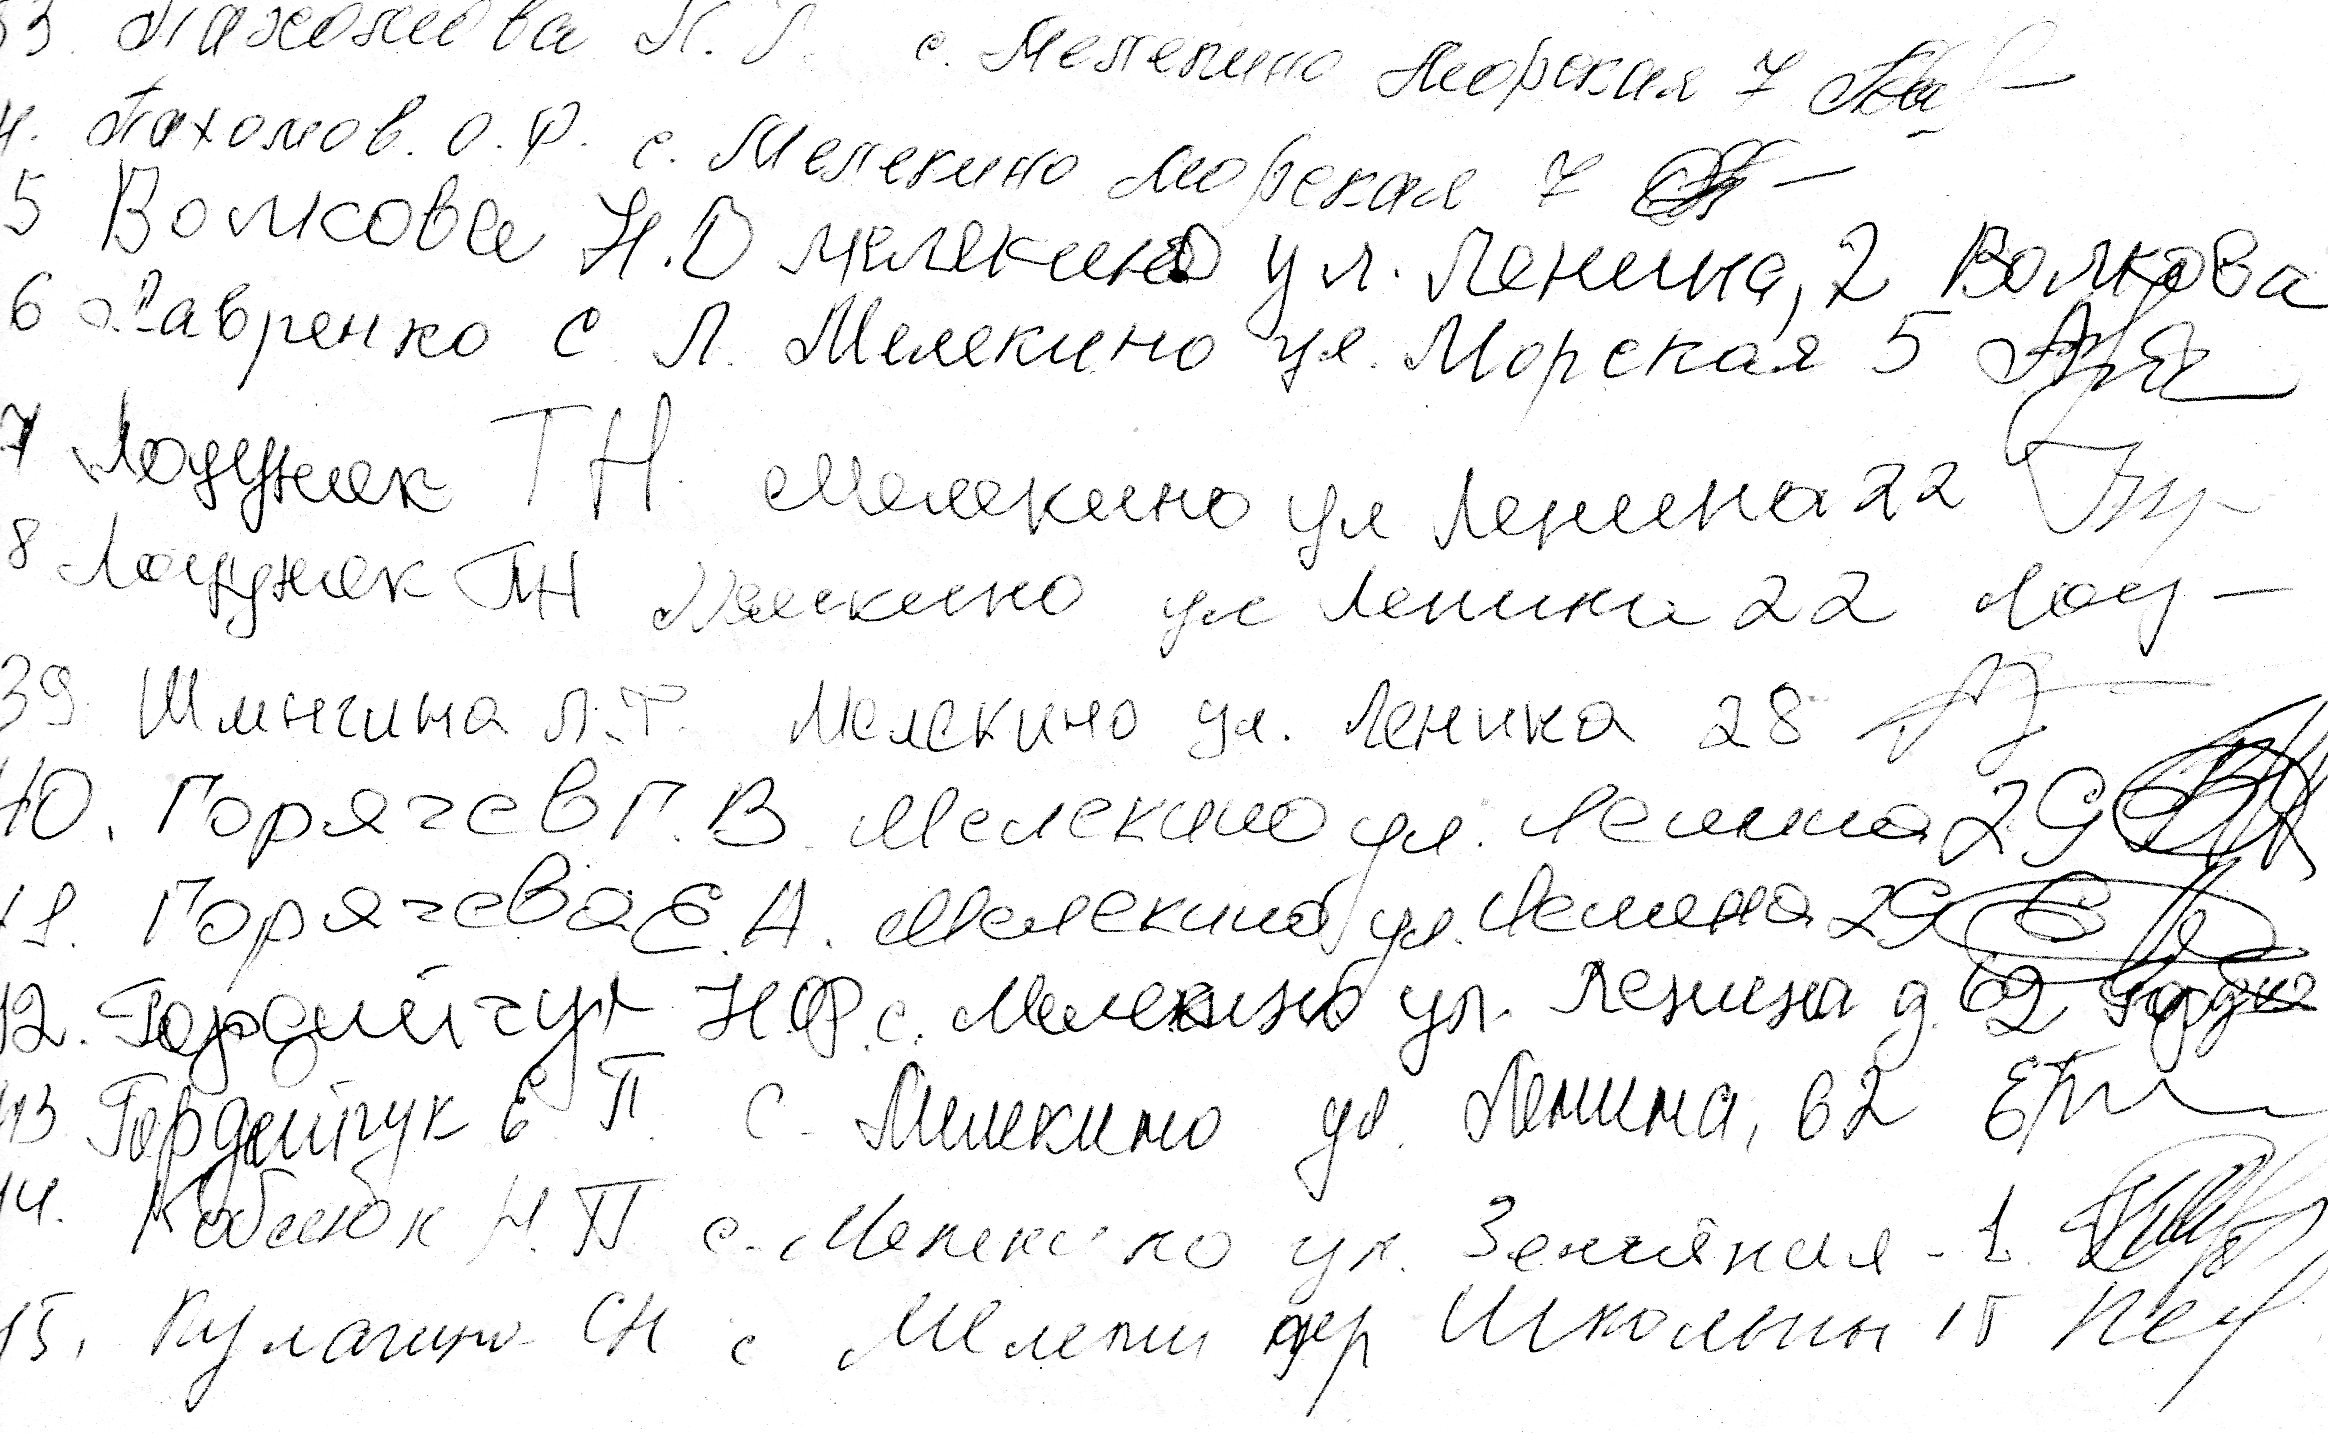 33. Пахомова К. Г. с. Мелекино Морская 7
4. Пахомов. О. Ф. с. Мелекино Морская 7
5 Волкова Н. В Мелекино ул. Ленина, 2 Волкова
6 Лавренко С. Л. Мелекино ул. Морская 5
7 Лоцуняк Т Н. Мелекино ул Ленина 22
8 Лоцуняк П Н Мелекино ул Ленина 22 Лоц
39. Шлыгина Л. Т. Мелекино ул. Ленина 28
40. Горячев Г. В. Мелекино ул. Ленина 29
41. Горячева Е. А. Мелекино ул. Ленина 29
12. Гордийчук Н. Ф. с. Мелекино ул. Ленина д. 62
43 Гордейчук Е. П. с. Мелекино ул. Ленина, 62
14. Н. П. с. Мелекино ул. 1.
45. Кулагин СН с Школьн 15